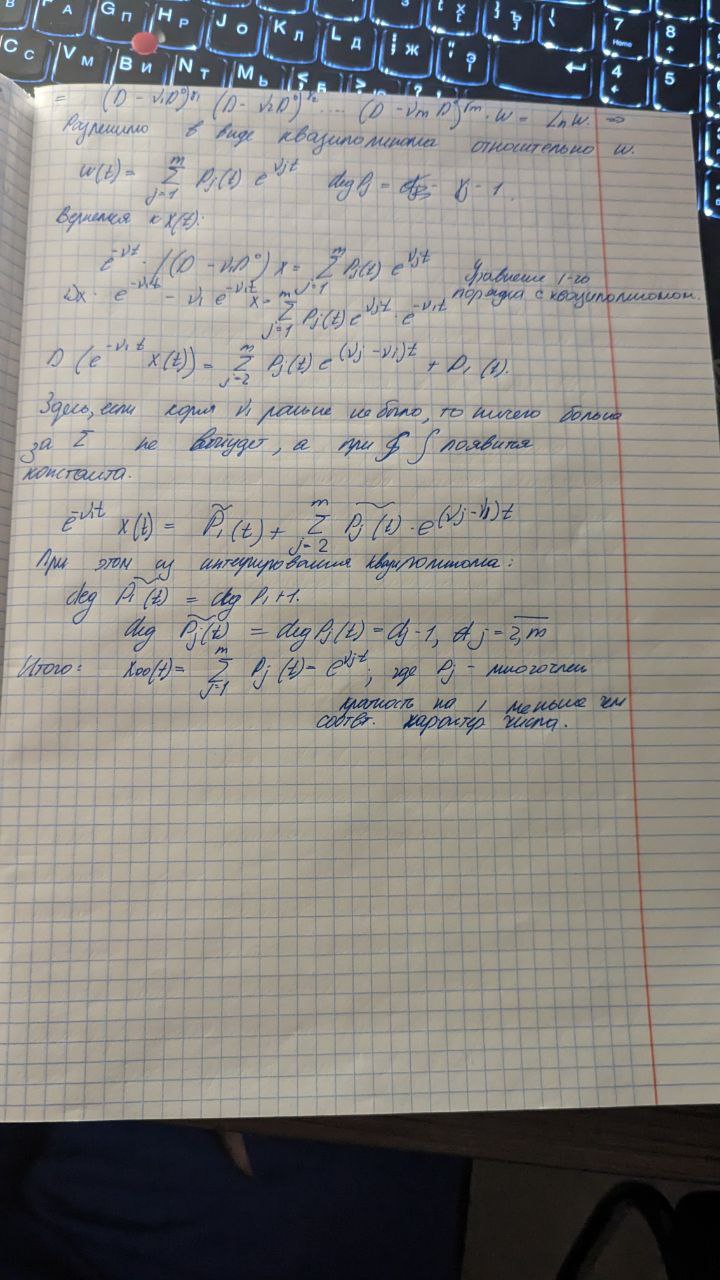 В A G П H Р J О K Л L Д ; Ж Э 7 Home 8
C С V М B И N Т M Ь < Б 4 5
= (D - ν₁D°)^γ₁ (D - ν₂D°)^γ₂ .... (D - νm D°)^γm · w = Lₙ w. ⇒
Разрешимо в виде квазиполинома относительно w.
w(t) = Σ_{j=1}^{m} Pj(t) e^{νjt} deg Pj = γj - 1.
Вернемся к x(t):
e^{-νt} · / (D - ν₁D°) x = Σ_{j=1}^{m} Pj(t) e^{νjt} Уравнение 1-го
Dx · e^{-ν₁t} - ν₁ e^{-ν₁t} x = Σ_{j=1}^{m} Pj(t) e^{νjt} · e^{-ν₁t} порядка с квазиполиномом.
D (e^{-ν₁t} x(t)) = Σ_{j=2}^{m} Pj(t) e^{(νj - ν₁)t} + P₁(t).
Здесь, если корня ν₁ раньше не было, то ничего больше
за Σ не выйдет, а при ∫ появится
константа.
e^{-ν₁t} x(t) = P̃₁(t) + Σ_{j=2}^{m} P̃j(t) · e^{(νj - ν₁)t}
При этом из интегрирования квазиполинома:
deg P̃₁(t) = deg P₁ + 1.
deg P̃j(t) = deg Pj(t) = αj - 1, ∀ j = 2,m
Итого: x₀₀(t) = Σ_{j=1}^{m} Pj(t) = e^{νjt}, где Pj - многочлен
кратность на 1 меньше чем
соотв. характер числа.